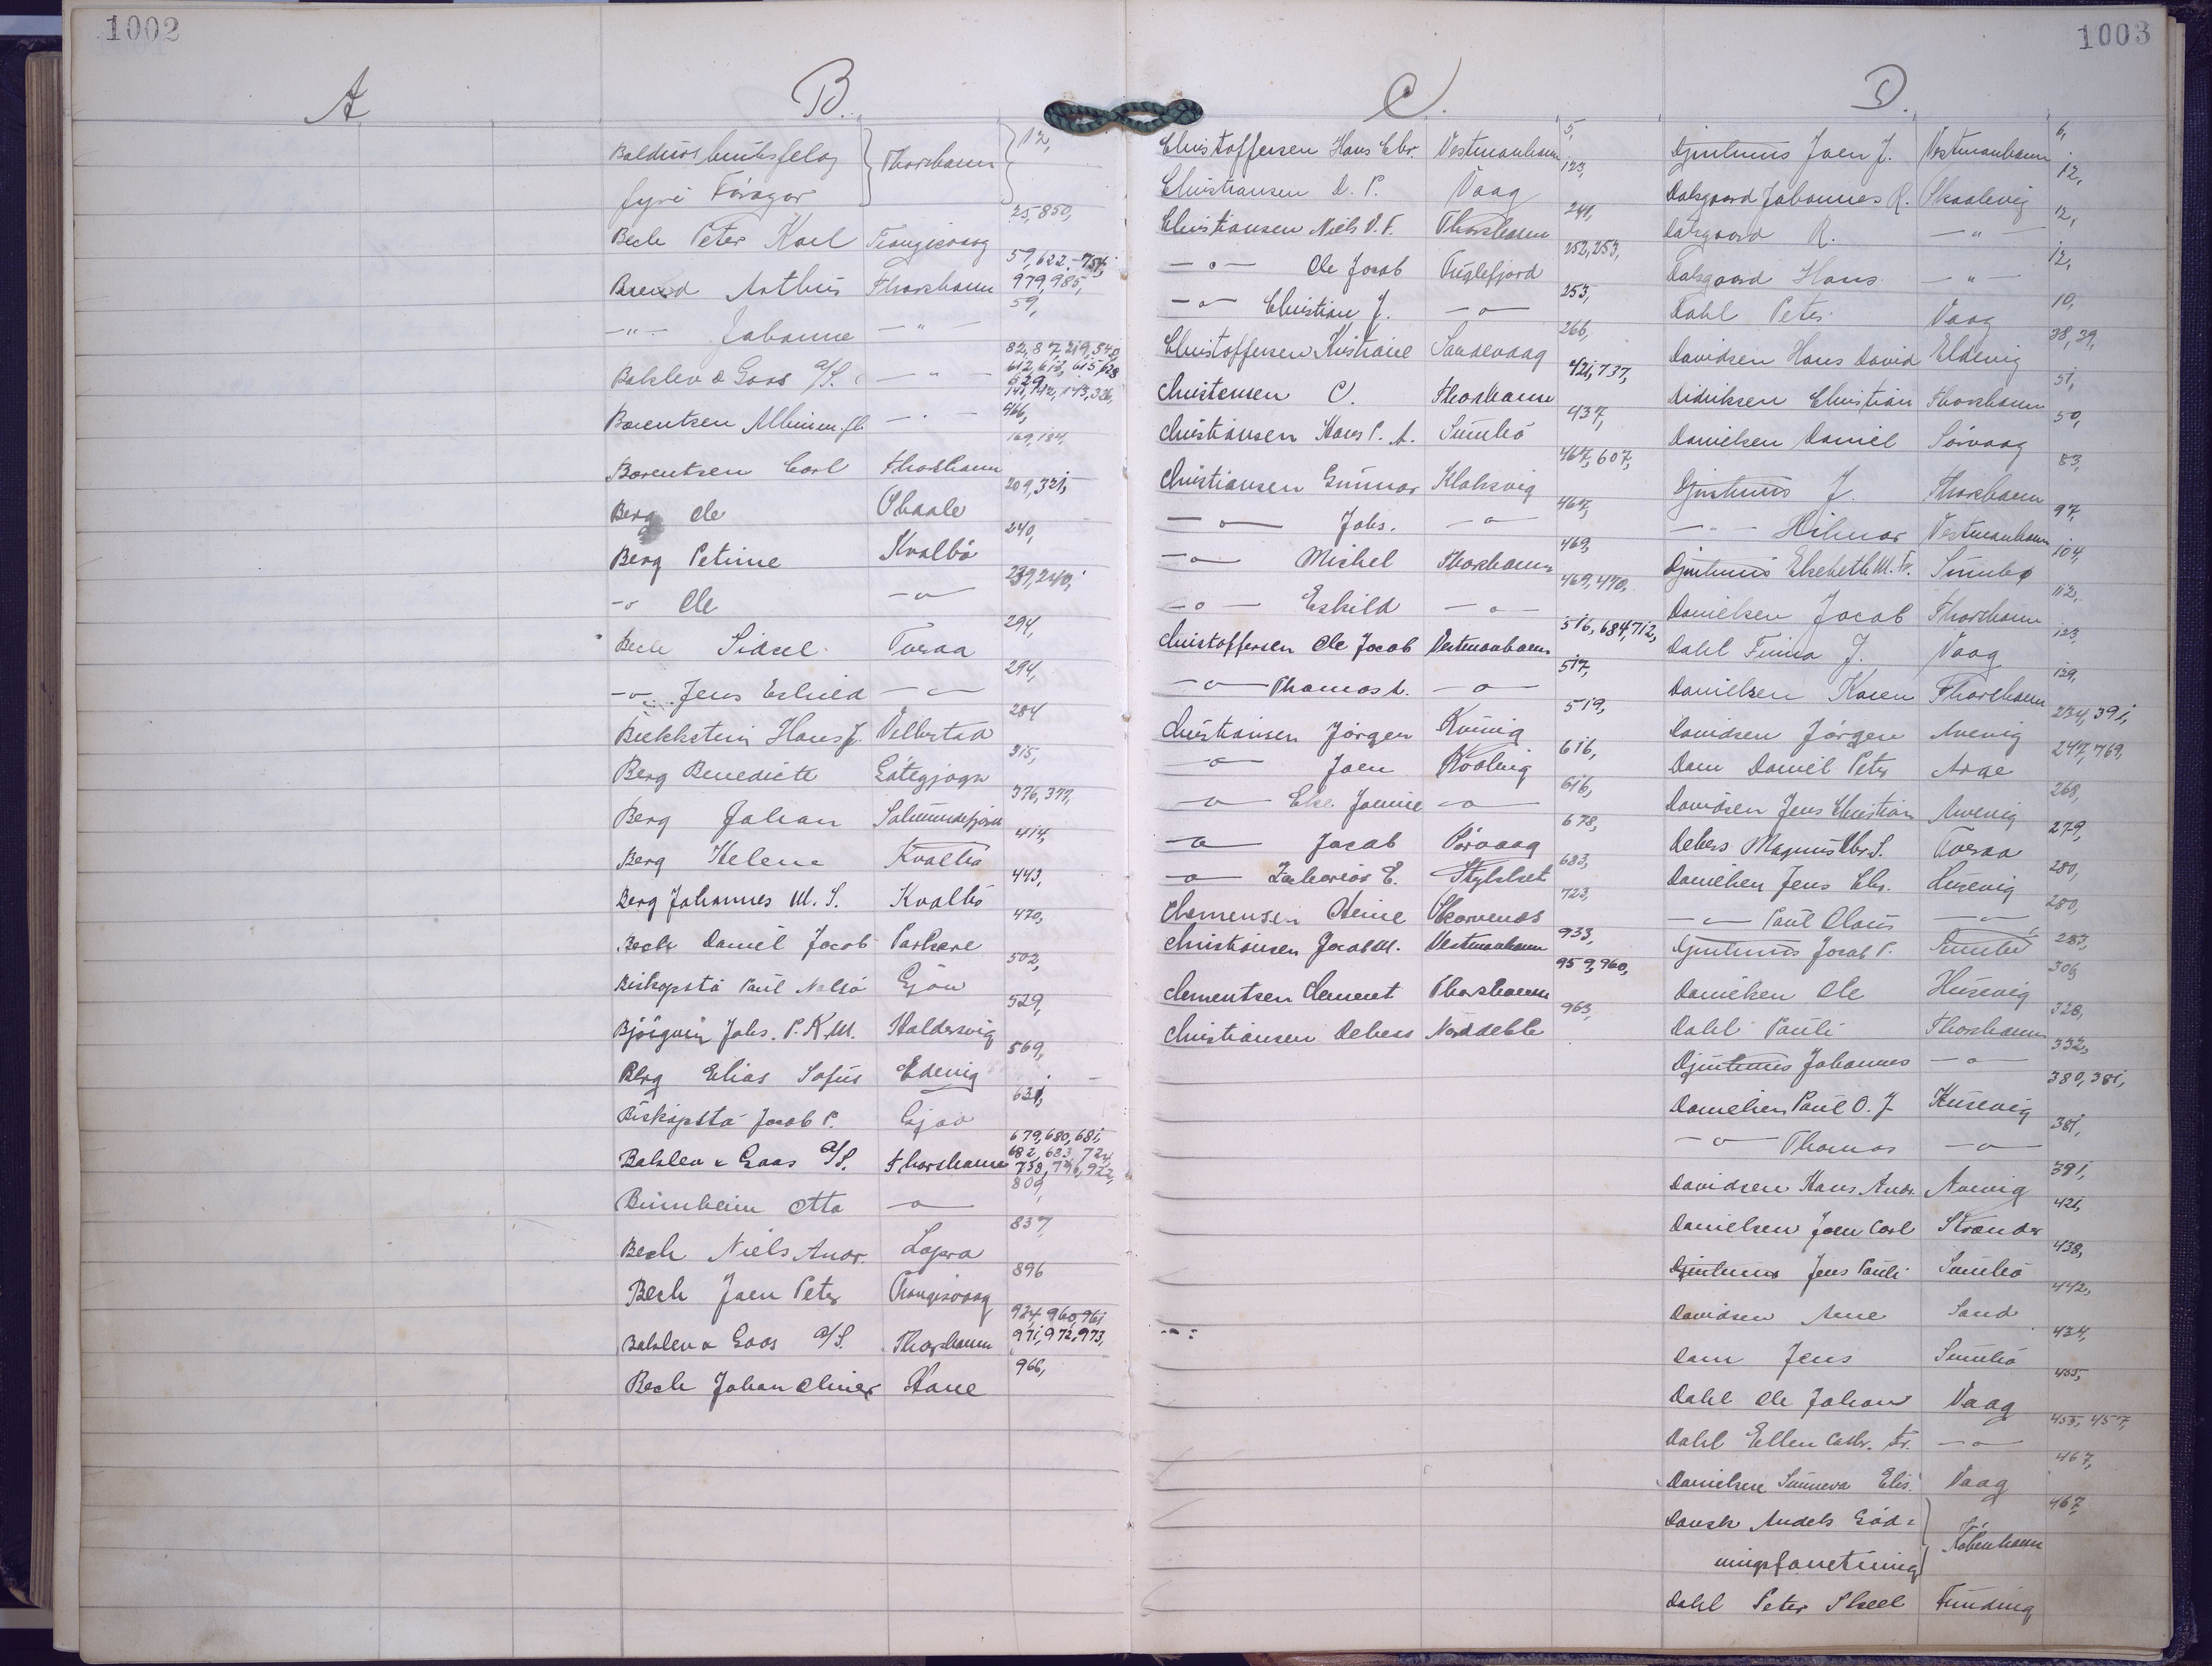 1002
A
B.
Thorshavn 12,
fyri Føroyar
25, 850,
Bech Peter Karl Trangisvaag
59, 622, 754,
Arthur Thorshavn 979, 985,
59,
-"- Johanne -"-
82, 87, 219, 540,
612, 613, 615, 628
Balslev & Goos A/S. -"- 629,
141, 142, 143, 326,
Barentsen -"- 466,
169, 184,
Barentsen Carl Thorshavn
209, 321,
Berg Ole Skaale
240,
Berg Petrine Kvalbø
239, 240,
-o- Ole -o-
294,
Bech Sidsel Tveraa
294,
-o- Jens Eskild -o-
284
Hans J. Velbestad
315,
Berg Benedicte Gøtegjogv
376, 377,
Berg Johan
414,
Berg Helene Kvalbø
443,
Berg Johannes M. S. Kvalbø
470,
Bech Daniel Jacob Porkere
502,
Biskopstø Paul Nolsø Gjov
529,
Johs. P. K. M. Haldersvig
569,
Berg Elias Sofus Edevig
631,
Biskopstø Jacob P. Gjov
679, 680, 681,
682, 683, 724,
Balslev & Goos A/S. Thorshavn 738, 796, 922,
809,
Otto -o-
837,
Bech Niels Andr. Lopra
896
Bech Joen Peter Trangisvaag
924, 960, 961
Balslev & Goos A/S. Thorshavn 971, 972, 973,
966,
Bech Johan Oliver Hove
1003
C.
5,
Christoffersen Hans Chr. Vestmanhavn
123,
Christiansen D. P. Vaag
241,
Christiansen Niels V. F. Thorshavn
252, 253,
-o- Ole Jacob Fuglefjord
253,
-o- Christian J. -o-
266,
Christoffersen Kristine Sandevaag
421, 737,
Christensen C. Thorshavn
437,
Christiansen Hans P. A. Sumbø
467, 607,
Christiansen Gunnar Klaksvig
467,
-o- Johs. -o-
469,
-o- Mickel Thorshavn
469, 470,
-o- Eskild -o-
516, 684, 712,
Christoffersen Ole Jacob Vestmanhavn
517,
-o- Thomas L. -o-
519,
Christiansen Jørgen Kvivig
616,
-o- Joen
616,
-o- Else Jovine -o-
678,
-o- Jacob Sørvaag
683,
-o- Zacharias E.
723,
Clemensen Heine Skarvenæs
933,
Christiansen Jacob M. Vestmanhavn
959, 960,
Clementsen Clement Thorshavn
963,
Christiansen Debess Norddeble
D.
6,
Djurhuus Joen J. Vestmanhavn
12,
Dalsgaard Johannes R. Skaalevig
12,
Dalsgaard R. -"-
12,
Dalsgaard Hans -"-
10,
Dahl Peter Vaag
38, 39,
Davidsen Hans David Eldevig
51,
Didriksen Christian Thorshavn
50,
Danielsen Daniel Sørvaag
83,
Djurhuus J. Thorshavn
97,
-"- Hilmar Vestmanhavn
104,
Djurhuus Elsebeth M. Fr. Sumbø
112,
Danielsen Jacob Thorshavn
123,
Dahl Finna J. Vaag
129,
Danielsen Karen Thorshavn
234, 391,
Davidsen Jørgen Arnevig
247, 769,
Dam Daniel Peter Arge
268,
Davidsen Jens Christian Arnevig
279,
Debess Magnus Chr. S. Tveraa
280,
Danielsen Jens Chr. Husevig
280,
-o- Paul Claus -o-
283,
Djurhuus Jacob P. Sumbø
306,
Danielsen Ole Husevig
328,
Dahl Pauli Thorshavn
332,
Djurhuus Johannes -o-
380, 381,
Danielsen Paul O. J. Husevig
381,
-o- Thomas -o-
391,
Davidsen Hans Andr. Arnevig
421,
Danielsen Joen Carl Strender
438,
Djurhuus Jens Pauli Sumbø
442,
Davidsen Arne Sand
434,
Dam Jens Sumbø
455,
Dahl Ole Johan Vaag
455, 457,
Dahl Ellen Cathr. Fr. -o-
467,
Danielsen Sunneva Elis. Vaag
467,
Dansk Andels Gød=
ningsforretning København
Dahl Peter Skeel Funding